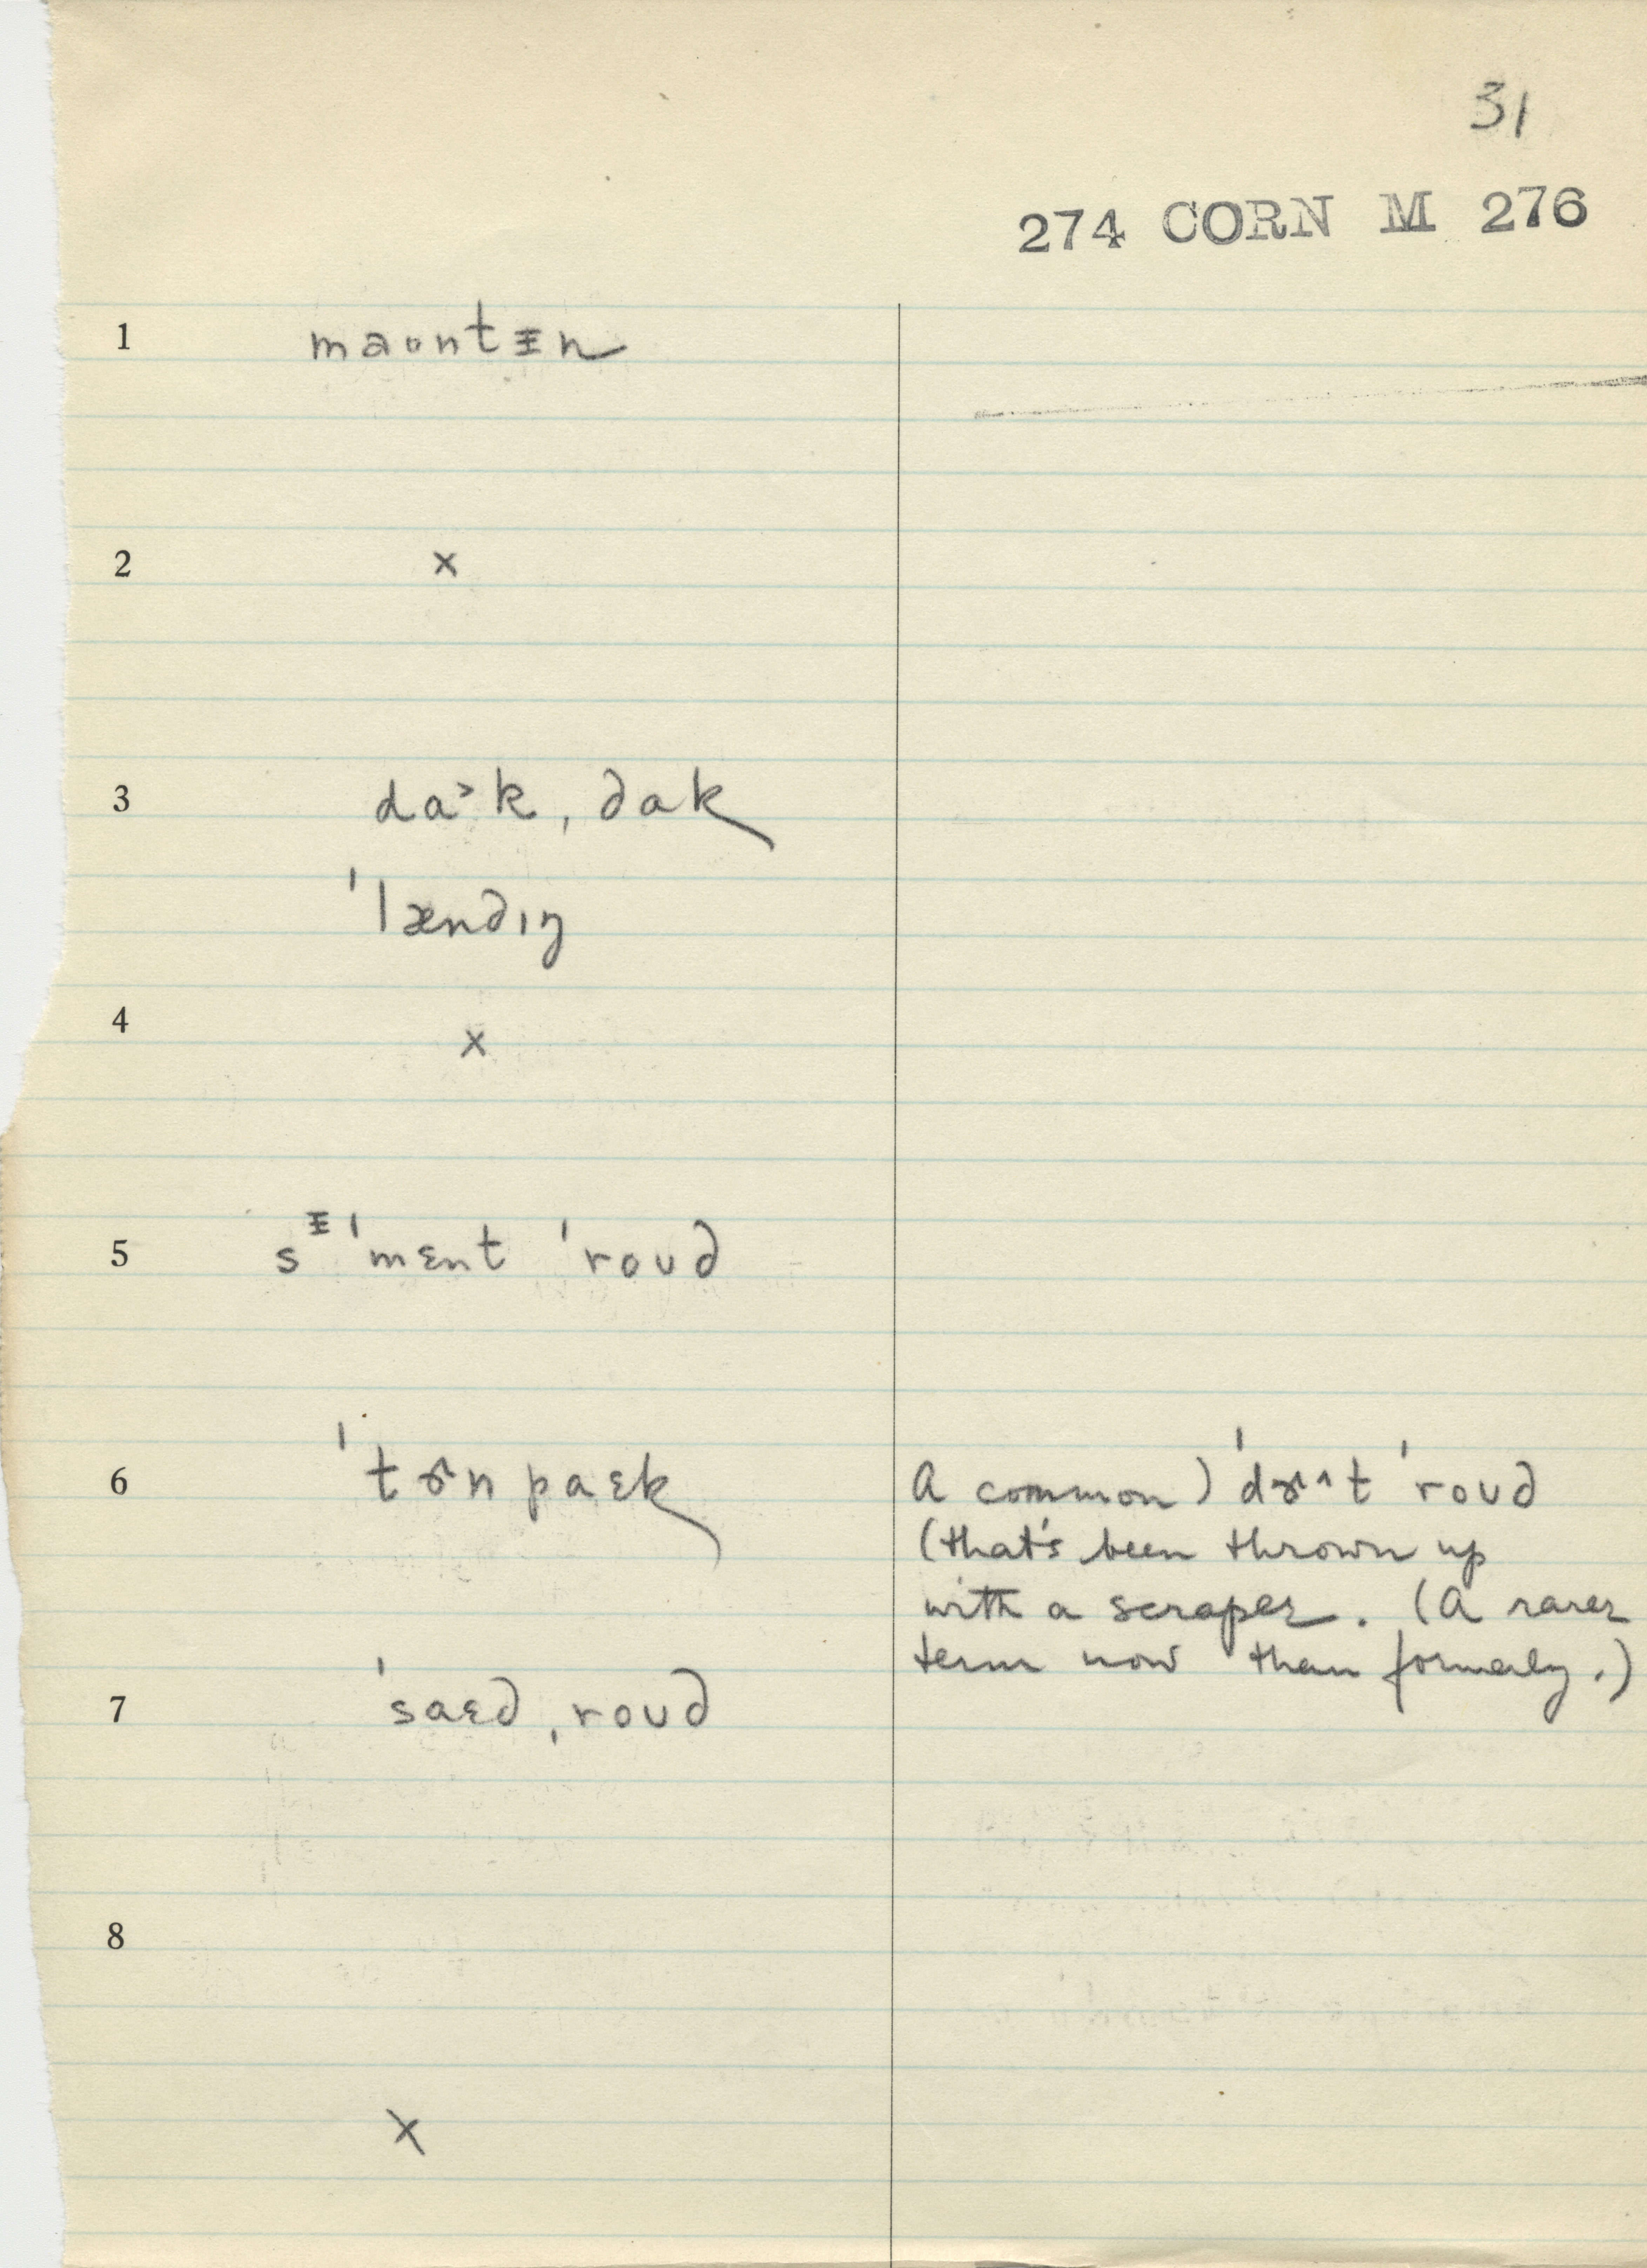 31
274 CORN M 276
1 maʊntᵻn
2 x
3 da˃k, dak
ˈlændɪŋ
4 x
5 sᵻˈmɛnt ˈroʊd
6 ˈtɝnpaɛk A common) ˈdɝ^t ˈroʊd
(that's been thrown up
with a scraper. (A rarer
term now than formerly.)
7 ˈsaɛd ˌroʊd
8
x